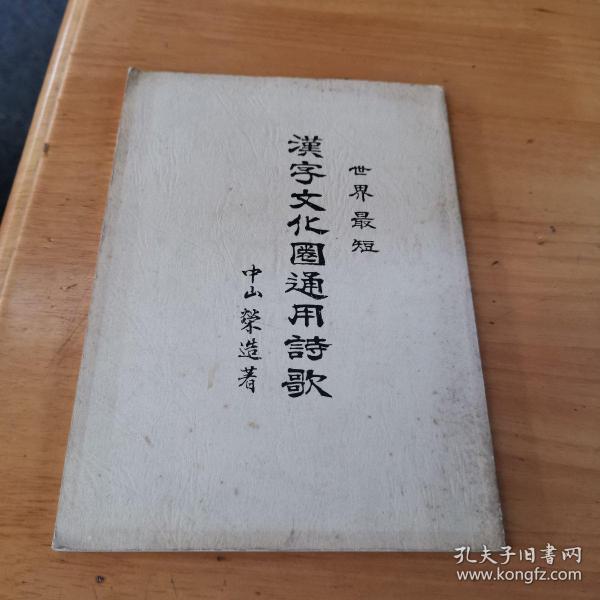 世界最短
漢字文化圈通用詩歌
中山榮造著
孔夫子旧書网
www.kongfz.com